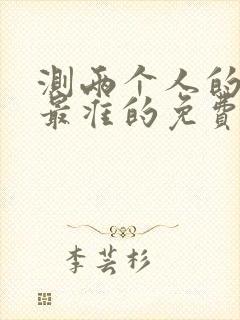 測兩个人的
最准的免費
李芸杉